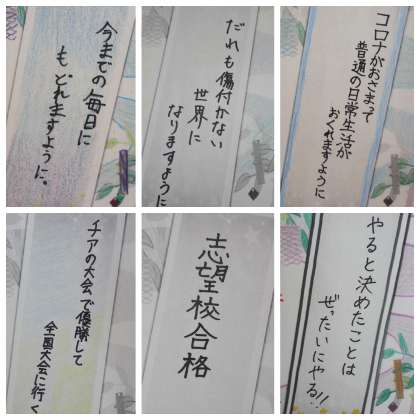 今までの毎日に
もどれますように。
だれも傷付かない
世界に
なりますように
コロナがおさまって
普通の日常生活が
おくれますように
チアの大会で優勝して
全国大会に行く
志望校合格
やると決めたことは
ぜったいにやる!!